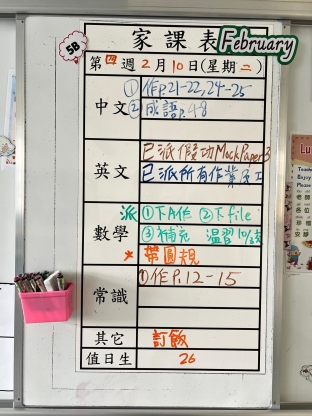 5B
家課表 February
第四週2月10日(星期二)
中文
①作p.21-22,24-25
②成語p.48
英文
已派假功Mock Paper3
已派所有作業及工
數學
派①下A作 ②下file
③補充 溫習
*帶圓規
常識
①作P.12-15
其它
訂飯
值日生
26